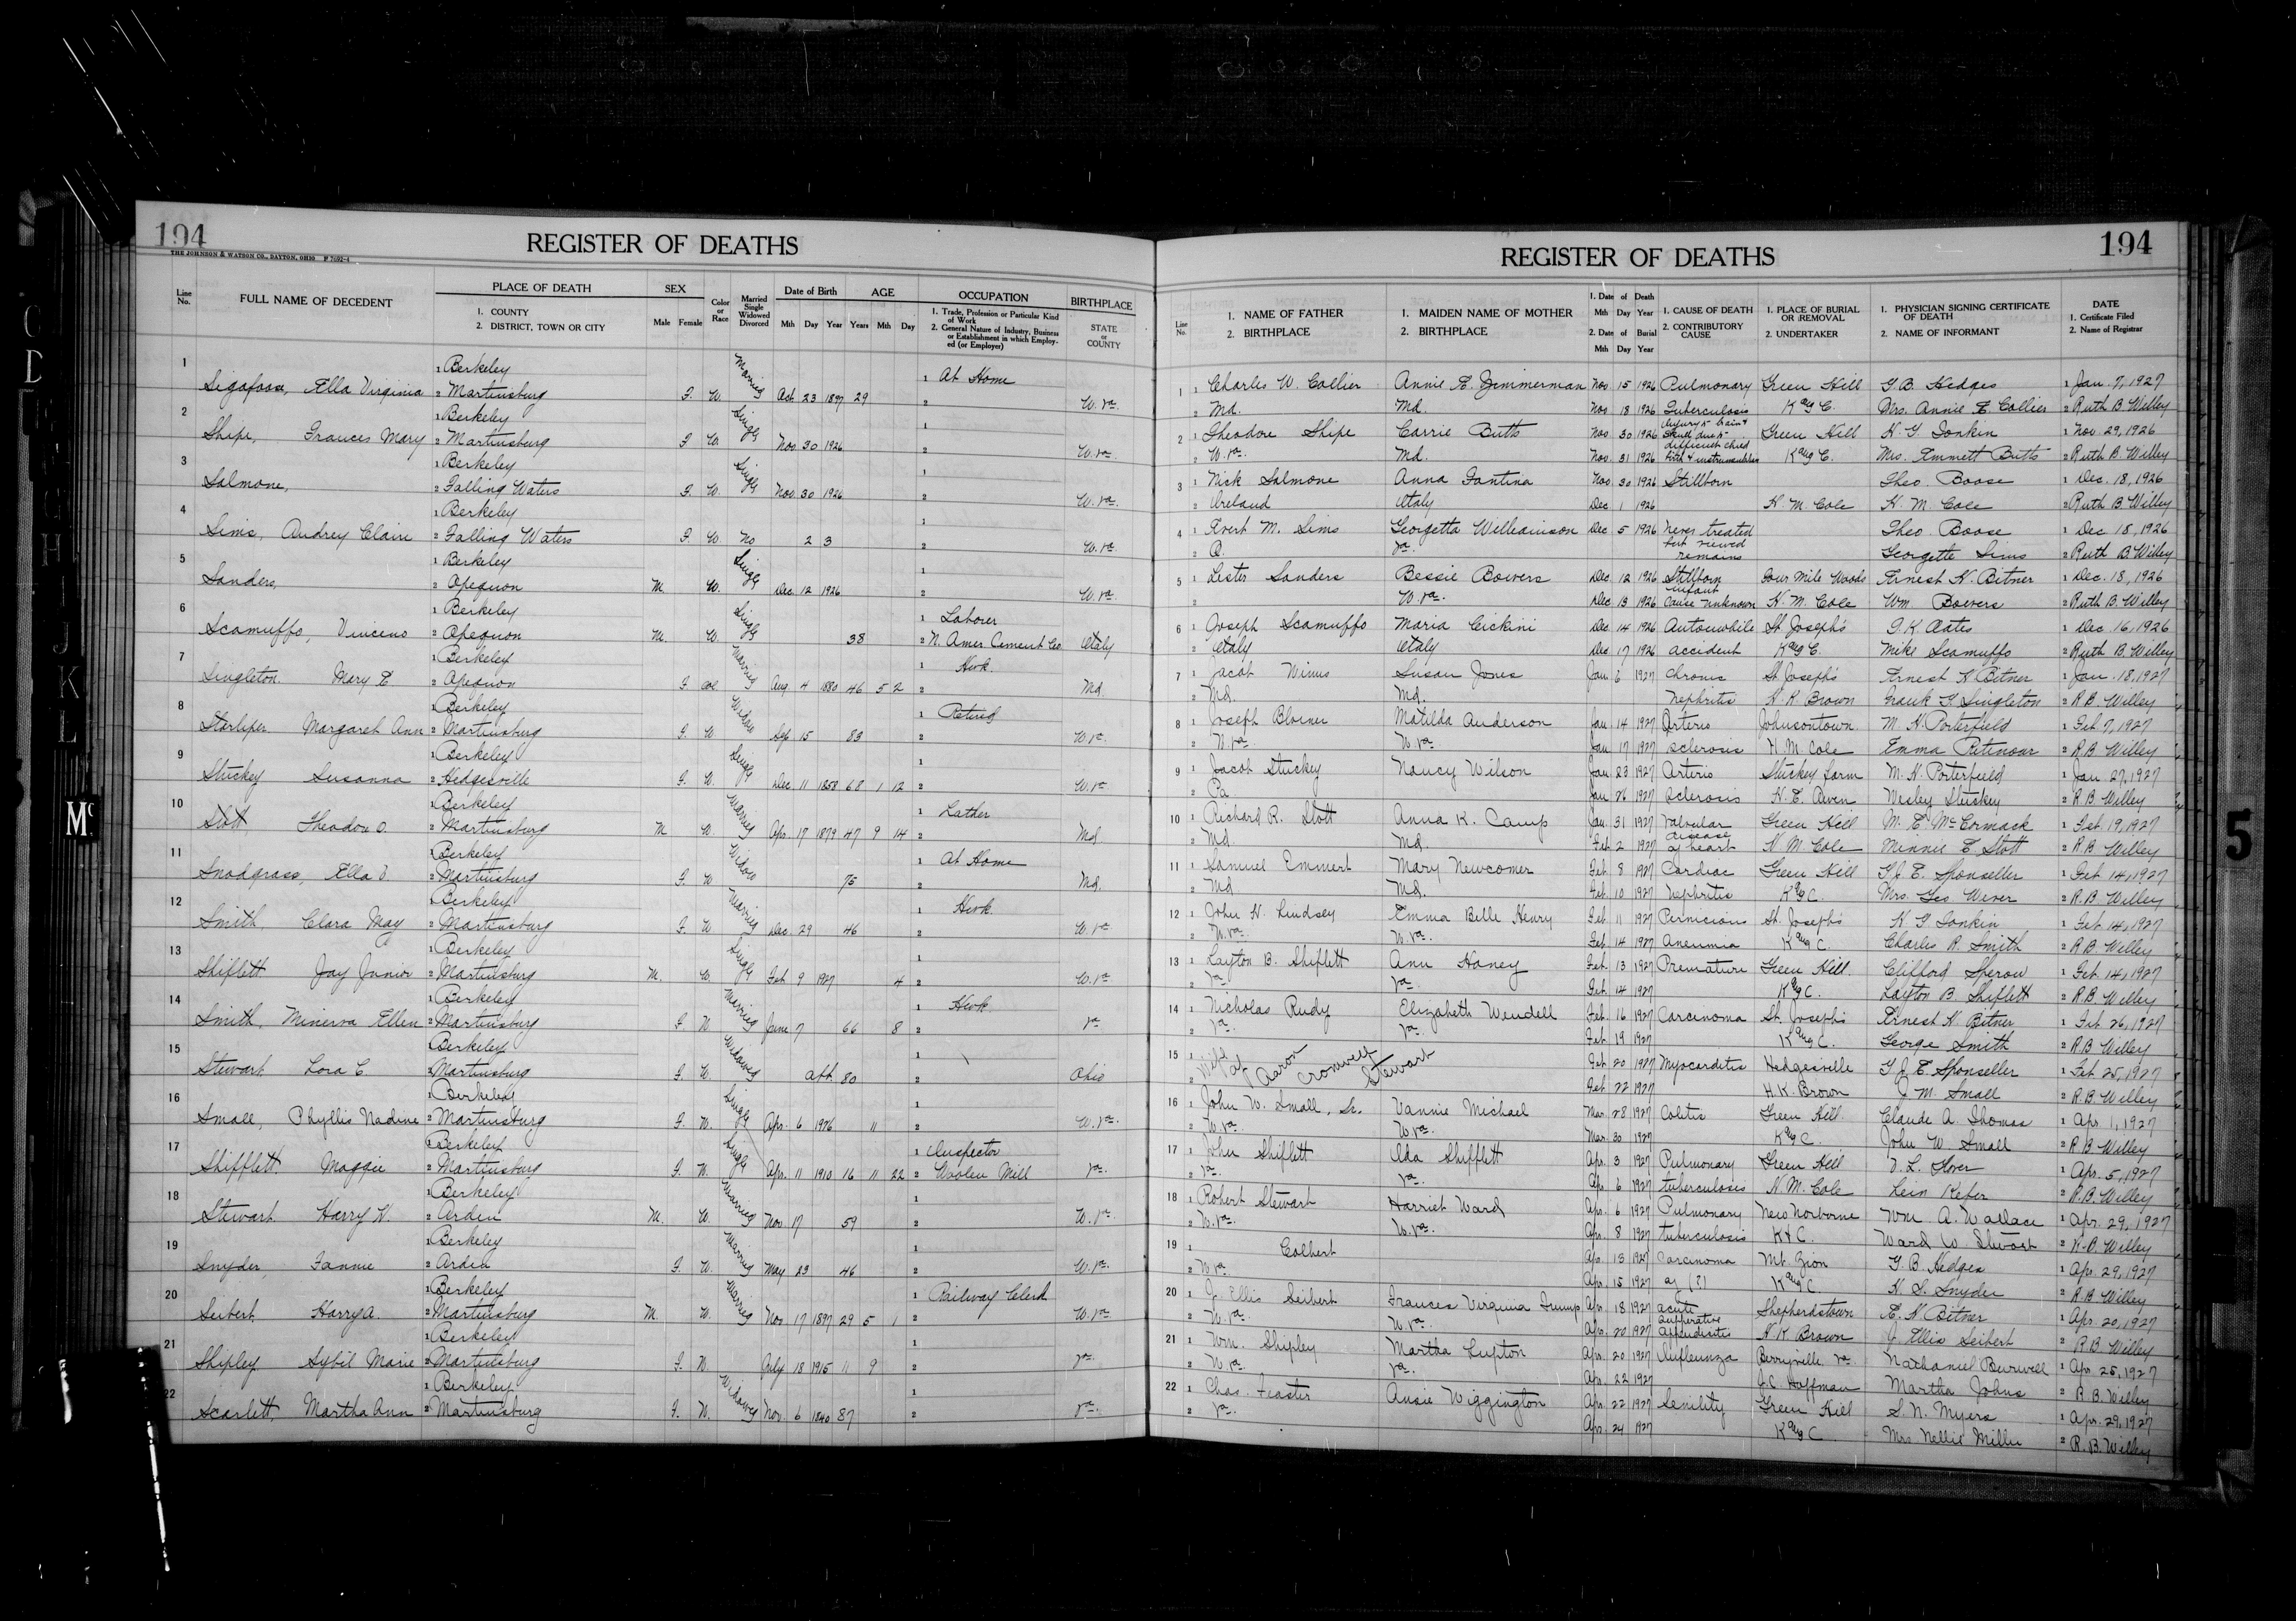 194
REGISTER OF DEATHS
THE JOHNSON & WATSON CO., DAYTON, OHIO P 7692-4
Line No.
FULL NAME OF DECEDENT
PLACE OF DEATH
1. COUNTY
2. DISTRICT, TOWN OR CITY
SEX
Male Female
Color or Race
Married Single Widowed Divorced
Date of Birth
Mth Day Year
AGE
Years Mth Day
OCCUPATION
1. Trade, Profession or Particular Kind of Work
2. General Nature of Industry, Business or Establishment in which Employed (or Employer)
BIRTHPLACE
STATE or COUNTY
1 1 Berkeley 1 At Home
Sigafoose, Ella Virginia 2 Martinsburg F. W. Married Oct 23 1897 29 2 W. Va.
2 1 Berkeley 1
Shipe, Frances Mary 2 Martinsburg F W. Single Nov 30 1926 2 W. Va.
3 1 Berkeley 1
Salmone, 2 Falling Waters F. W. Single Nov. 30 1926 2 W. Va.
4 1 Berkeley 1
Sims, Audrey Claire 2 Falling Waters F. W. No 2 3 2 W. Va.
5 1 Berkeley 1
Sanders, 2 Opequon M. W. Single Dec. 12 1926 2 W. Va.
6 1 Berkeley 1 Laborer
Scamuffo, Vinceno 2 Opequon M. W. Single 38 2 N. Amer Cement Co Italy
7 1 Berkeley 1 Hwk.
Singleton. Mary E 2 Opequon F Col. Married Aug. 4 1880 46 5 2 2 Md.
8 1 Berkeley 1 Retired
Starliper Margaret Ann 2 Martinsburg F. W Widow Sep 15 83 2 W. Va.
9 1 Berkeley 1
Stuckey Susanna 2 Hedgesville F W. Single Dec. 11 1858 68 1 12 2 W. Va
10 1 Berkeley 1 Lather
Stott Theodore O. 2 Martinsburg M W. Married Apr. 17 1879 47 9 14 2 Md
11 1 Berkeley 1 At Home
Snodgrass, Ella V. 2 Martinsburg F. W Widow 75 2 Md.
12 1 Berkeley 1 Hwk.
Smith Clara May 2 Martinsburg F. W Married Dec. 29 46 2 W. Va
13 1 Berkeley 1
Shiflett Jay Junior 2 Martinsburg M. W. Single Feb 9 1927 4 2 W. Va.
14 1 Berkeley 1 Hwk.
Smith, Minerva Ellen 2 Martinsburg F W Married June 7 66 8 2 Va
15 1 Berkeley 1
Stewart Lora C 2 Martinsburg F. W. Widowed abt. 80 2 Ohio
16 1 Berkeley 1
Small, Phyllis Nadine 2 Martinsburg F. W. Single Apr. 6 1926 11 2 W. Va.
17 1 Berkeley 1 Inspector
Shifflett Maggie 2 Martinsburg F. W. Single Apr. 11 1910 16 11 22 2 Woolen Mill Va.
18 1 Berkeley 1
Stewart. Harry H. 2 Arden M. W. Married Nov 17 59 2 W. Va.
19 1 Berkeley 1
Snyder, Fannie 2 Arden F. W. Married May 23 46 2 W. Va.
20 1 Berkeley 1 Railway Clerk
Seibert. Harry A. 2 Martinsburg M. W. Married Nov 17 1897 29 5 1 2 W. Va.
21 1 Berkeley 1
Shipley Sybil Marie 2 Martinsburg F. W. July 18 1915 11 9 2 Va.
22 1 Berkeley 1
Scarlett, Martha Ann 2 Martinsburg F. W. Widowed Nov. 6 1840 87 2 Va.
REGISTER OF DEATHS
194
Line No.
1. NAME OF FATHER
2. BIRTHPLACE
1. MAIDEN NAME OF MOTHER
2. BIRTHPLACE
1. Date of Death
Mth Day Year
2. Date of Burial
Mth Day Year
1. CAUSE OF DEATH
2. CONTRIBUTORY CAUSE
1. PLACE OF BURIAL OR REMOVAL
2. UNDERTAKER
1. PHYSICIAN SIGNING CERTIFICATE OF DEATH
2. NAME OF INFORMANT
DATE
1. Certificate Filed
2. Name of Registrar
1 1 Charles W. Collier Annie E. Zimmerman Nov. 15 1926 Pulmonary Green Hill G. B. Hedges 1 Jan. 7, 1927
2 Md. Md. Nov 18 1926 Tuberculosis K & C. Mrs. Annie E. Collier 2 Ruth B. Willey
2 1 Theodore Shipe Carrie Butts Nov 30 1926 Injury to brain & skull due to Green Hill H. G. Tonkin 1 Nov 29, 1926
2 W. Va. Md. Nov. 31 1926 difficult child birth & instrumentation K & C. Mrs. Emmett Butts 2 Ruth B. Willey
3 1 Nick Salmone Anna Fantina Nov. 30 1926 Stillborn Theo Boose 1 Dec. 18, 1926
2 Ireland Italy Dec 1 1926 H. M. Cole H. M. Cole 2 Ruth B. Willey
4 1 Evert M. Sims Georgetta Williamson Dec 5 1926 never treated Theo Boose 1 Dec 18, 1926
2 Va. but viewed remains Georgette Sims 2 Ruth B. Willey
5 1 Lester Sanders Bessie Bowers Dec. 12 1926 Stillborn infant Four Mile Woods Ernest H. Bitner 1 Dec. 18, 1926
2 W. Va. Dec. 13 1926 Cause Unknown H. M. Cole Wm. Bowers 2 Ruth B. Willey
6 1 Joseph Scamuffo Maria Cickini Dec. 14 1926 Automobile St. Joseph's G. K. Oates 1 Dec. 16, 1926
2 Italy Italy Dec 17 1926 accident K & C. Mike Scamuffo 2 Ruth B. Willey
7 1 Jacob Wims Susan Jones Jan. 6 1927 Chronic St. Joseph's Ernest H Bitner 1 Jan. 18, 1927
2 Md. Md. nephritis H. K Brown Frank F Singleton 2 R. B. Willey
8 1 Joseph Matilda Anderson Jan. 14 1927 Arterio Johnsontown. M. H. Porterfield 1 Feb 7, 1927
2 W. Va W. Va Jan. 17 1927 sclerosis H. M. Cole Emma Ritenour 2 R. B. Willey
9 1 Jacob Stuckey Nancy Wilson Jan. 23 1927 Arterio Stuckey Farm M. H. Porterfield 1 Jan. 27, 1927
2 Pa Jan. 26 1927 sclerosis H. E. Awen Wesley Stuckey 2 R. B. Willey
10 1 Richard R. Stott Anna K. Camp Jan. 31 1927 Valvular Green Hill M. E. McCormack 1 Feb. 19, 1927
2 Md. Md. Feb. 2 1927 disease of heart H. M Cole Minnie E. Stott 2 R. B. Willey
11 1 Samuel Emmert Mary Newcomer Feb. 8 1927 Cardiac Green Hill G. J. E. Sponseller 1 Feb 14, 1927
2 Md Md. Feb. 10 1927 nephritis K & C. Mrs. Geo Wever 2 R. B. Willey
12 1 John H. Lindsey Emma Belle Henry Feb. 11 1927 Pernicious St. Joseph's H. G Tonkin 1 Feb 14, 1927
2 W. Va. W. Va. Feb. 14 1927 aneumia K & C. Charles R. Smith 2 R. B. Willey
13 1 Layton B. Shiflett Ann Haney Feb. 13 1927 Premature Green Hill. Clifford Sperow 1 Feb. 14, 1927
2 Va. Va Feb. 14 1927 K & C. Layton B. Shiflett 2 R. B. Willey
14 1 Nicholas Rudy Elizabeth Wendell Feb. 16 1927 Carcinoma St. Joseph's Ernest H. Bitner 1 Feb. 26, 1927
2 Va. Va. Feb 19 1927 K & C. George Smith 2 R. B Willey
15 Wife of Aaron Cromwell Stewart Feb 20 1927 Myocarditis Hedgesville G. J. E. Sponseller 1 Feb 25, 1927
Feb. 22 1927 H. K. Brown J. M. Small 2 R. B. Willey
16 1 John W. Small, Sr. Vannie Michael Mar. 28 1927 Colitis Green Hill Claude A. Thomas 1 Apr. 1, 1927
2 W. Va. W. Va. Mar. 30 1927 K & C. John W. Small 2 R. B Willey
17 1 John Shiflett Ada Shifflett Apr. 3 1927 Pulmonary Green Hill V. L. Glover 1 Apr. 5, 1927
2 Va. Va. Apr. 6 1927 tuberculosis H. M. Cole 2 R. B. Willey
18 1 Robert Stewart Harriet Ward Apr. 6 1927 Pulmonary New Norborne Wm A. Wallace 1 Apr. 29, 1927
2 W. Va. W. Va. Apr. 8 1927 tuberculosis K & C. Ward W Stewart 2 R. B. Willey
19 1 Colbert Apr. 13 1927 Carcinoma Mt. Zion G. B. Hedges 1 Apr. 29, 1927
2 W. Va. Apr. 15 1927 of (?) K & C H. S. Snyder 2 R. B. Willey
20 1 J. Ellis Seibert Frances Virginia Trump Apr. 18 1927 acute Shepherdstown E. H Bitner 1 Apr. 20, 1927
2 W. Va. W. Va. Apr. 20 1927 suppurative appendicitis H. K Brown J. Ellis Seibert 2 R. B. Willey
21 1 Wm. Shipley Martha Lupton Apr. 20 1927 Influenza Berryville Va Nathaniel Burwell 1 Apr 25, 1927
2 W. Va Va. Apr. 22 1927 J. C. Hoffman Martha Johns 2 R. B. Willey
22 1 Chas. Feaster Ansie Wiggington Apr. 22 1927 Senility Green Hill S. N. Myers 1 Apr. 29, 1927
2 Va. Apr. 24 1927 K & C Mrs Nellie Miller 2 R. B. Willey
G
D
H
J
K
L
Mc
5